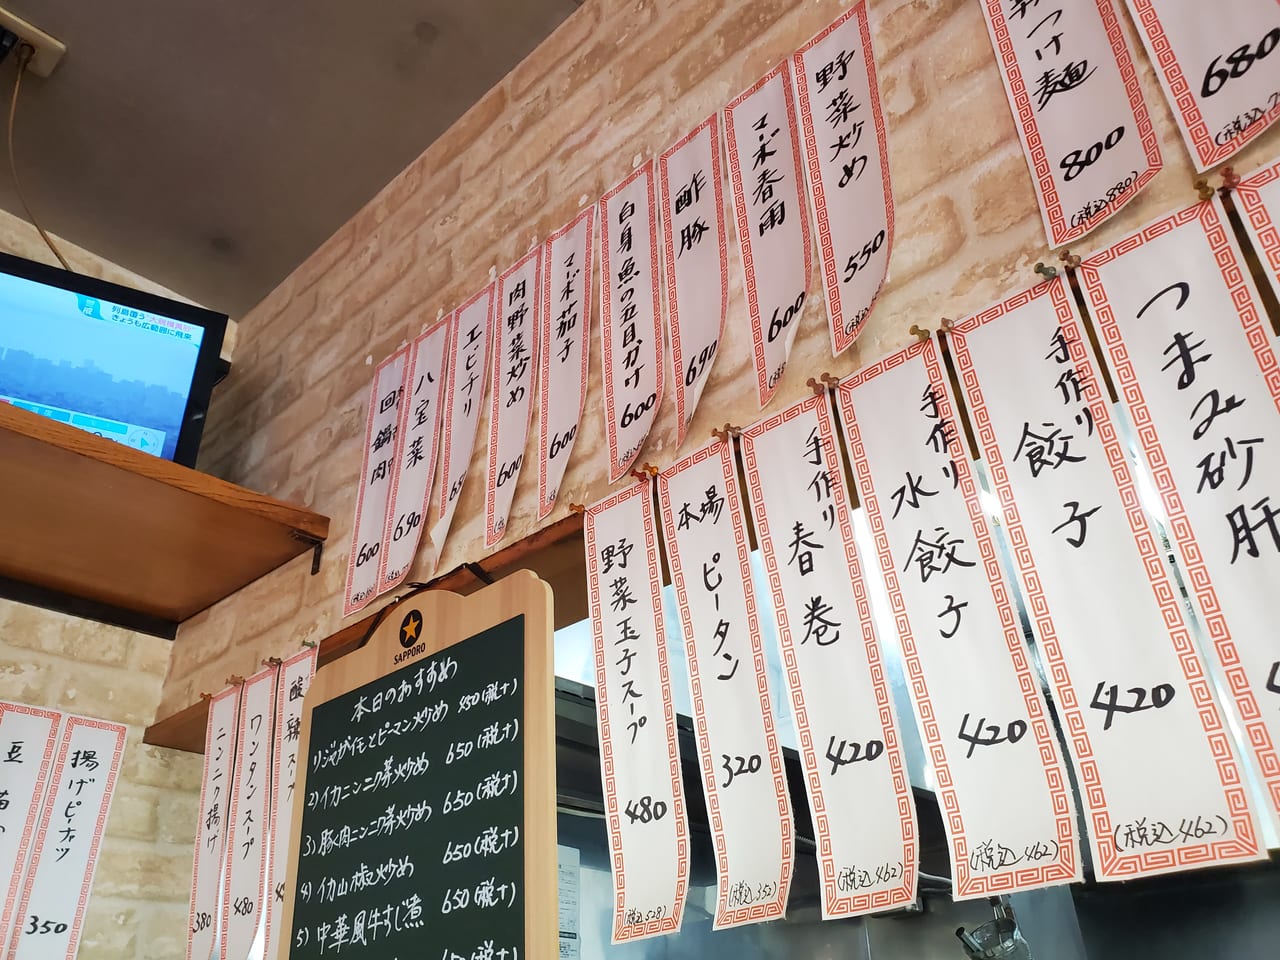 列島覆う"大規模黄砂"
きょうも広範囲に飛来
回鍋肉 600
八宝菜 690
エビチリ
肉野菜炒め 600
マーボ茄子 600
白身魚の五目あんかけ 600
酢豚 690
マーボ春雨 600
野菜炒め 550
つけ麺 800 (税込880)
680
野菜玉子スープ 480 (税込528)
本場 ピータン 320 (税込352)
手作り 春巻 420 (税込462)
手作り 水餃子 420 (税込462)
手作り 餃子 420 (税込462)
つまみ砂肝
SAPPORO
本日のおすすめ
1)ジャガイモとピーマン炒め 850(税+)
2)イカニンニク芽炒め 650(税+)
3)豚肉ニンニク芽炒め 650(税+)
4)イカ山椒炒め 650(税+)
5)中華風牛すじ煮 650(税+)
650(税+)
酸辣スープ
ワンタンスープ 480
ニンニク揚げ 380
揚げピーナッツ 350
豆